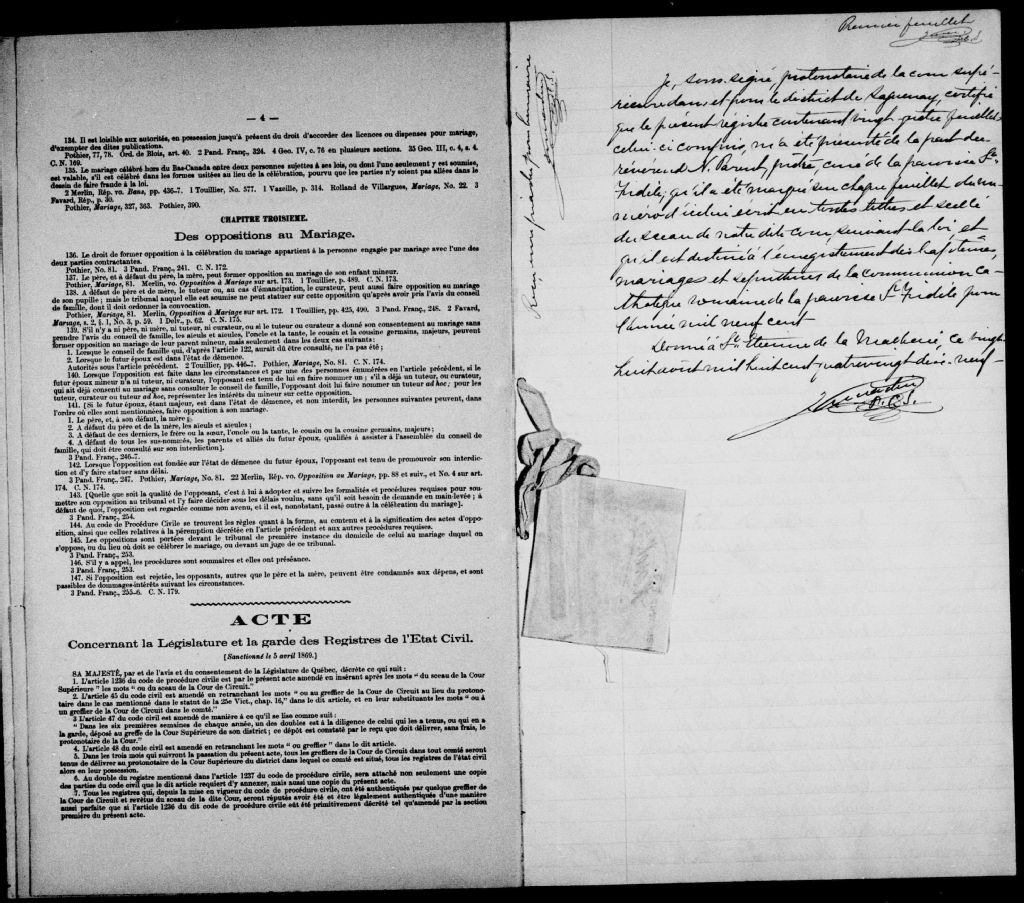 — 4 —
134. Il est loisible aux autorités, en possession jusqu'à présent du droit d'accorder des licences ou dispenses pour mariage,
d'exempter des dites publications.
Pothier, 77, 78. Ord. de Blois, art. 40. 2 Pand. Franç., 324. 4 Geo. IV, c. 76 en plusieurs sections. 35 Geo. III, c. 4, s. 4.
C. N. 169.
135. Le mariage célébré hors du Bas-Canada entre deux personnes sujettes à ses lois, ou dont l'une seulement y est soumise,
est valable, s'il est célébré dans les formes usitées au lieu de la célébration, pourvu que les parties n'y soient pas allées dans le
dessin de faire fraude à la loi.
2 Merlin, Rép. vo. Bans, pp. 436-7. 1 Touillier, No. 577. 1 Vazille, p. 314. Rolland de Villargues, Mariage, No. 22. 3
Favard, Rép., p. 30.
Pothier, Mariage, 327, 363. Pothier, 390.
CHAPITRE TROISIEME.
Des oppositions au Mariage.
136. Le droit de former opposition à la célébration du mariage appartient à la personne engagée par mariage avec l'une des
deux parties contractantes.
Pothier, No. 81. 3 Pand. Franç., 241. C. N. 172.
137. Le père, et à défaut du père, la mère, peut former opposition au mariage de son enfant mineur.
Pothier, Mariage, 81. Merlin, vo. Opposition à Mariage sur art. 173. 1 Touillier, p. 489. C. N. 173.
138. A défaut de père et de mère, le tuteur ou, au cas d'émancipation, le curateur, peut aussi faire opposition au mariage
de son pupille ; mais le tribunal auquel elle est soumise ne peut statuer sur cette opposition qu'après avoir pris l'avis du conseil
de famille, dont il doit ordonner la convocation.
Pothier, Mariage, 81. Merlin, Opposition à Mariage sur art. 172. 1 Touillier, pp. 425, 490. 3 Pand. Franç., 248. 2 Favard,
Mariage, s. 2, § 1, No. 3, p. 59. 1 Delv., p. 62. C. N. 175.
139. S'il n'y a ni père, ni mère, ni tuteur, ni curateur, ou si le tuteur ou curateur a donné son consentement au mariage sans
prendre l'avis du conseil de famille, les aïeuls et aïeules, l'oncle et la tante, le cousin et la cousine germains, majeurs, peuvent
former opposition au mariage de leur parent mineur, mais seulement dans les deux cas suivants :
1. Lorsque le conseil de famille qui, d'après l'article 122, aurait dû être consulté, ne l'a pas été ;
2. Lorsque le futur époux est dans l'état de démence.
Autorités sous l'article précédent. 2 Touillier, pp. 446-7. Pothier, Mariage, No. 81. C. N. 174.
140. Lorsque l'opposition est faite dans les circonstances et par une des personnes énumérées en l'article précédent, si le
futur époux mineur n'a ni tuteur, ni curateur, l'opposant est tenu de lui en faire nommer un ; s'il a déjà un tuteur, ou curateur,
qui ait déjà consenti au mariage sans consulter le conseil de famille, l'opposant doit lui faire nommer un tuteur ad hoc ; pour les
tuteur, curateur ou tuteur ad hoc, représenter les intérêts du mineur sur cette opposition.
141. [Si le futur époux, étant majeur, est dans l'état de démence, et non interdit, les personnes suivantes peuvent, dans
l'ordre où elles sont mentionnées, faire opposition à son mariage.
1. Le père, et, à son défaut, la mère ;
2. A défaut du père et de la mère, les aïeuls et aïeules ;
3. A défaut de ces derniers, le frère ou la sœur, l'oncle ou la tante, le cousin ou la cousine germains, majeurs ;
4. A défaut de tous les sus-nommés, les parents et alliés du futur époux, qualifiés à assister à l'assemblée du conseil de
famille, qui doit être consulté sur son interdiction].
3 Pand. Franç., 246-7.
142. Lorsque l'opposition est fondée sur l'état de démence du futur époux, l'opposant est tenu de promouvoir son interdic-
tion et d'y faire statuer sans délai.
3 Pand. Franç., 247. Pothier, Mariage, No. 81. 22 Merlin, Rép. vo. Opposition au Mariage, pp. 88 et suiv., et No. 4 sur art.
174. C. N. 174.
143. [Quelque que soit la qualité de l'opposant, c'est à lui à adopter et suivre les formalités et procédures requises pour sou-
mettre son opposition au tribunal et l'y faire décider sous les délais voulus, sans qu'il soit besoin de demande en main-levée ; à
défaut de quoi, l'opposition est regardée comme non avenu, et il est, nonobstant, passé outre à la célébration du mariage].
3 Pand. Franç., 254.
144. Au code de Procédure Civile se trouvent les règles quant à la forme, au contenu et à la signification des actes d'oppo-
sition, ainsi que celles relatives à la péremption décrétée en l'article précédent et aux autres procédures requises.
145. Les oppositions sont portées devant le tribunal de première instance du domicile de celui au mariage duquel on
s'oppose, ou du lieu où doit se célébrer le mariage, ou devant un juge de ce tribunal.
3 Pand. Franç., 253.
146. S'il y a appel, les procédures sont sommaires et elles ont préséance.
3 Pand. Franç., 253.
147. Si l'opposition est rejetée, les opposants, autres que le père et la mère, peuvent être condamnés aux dépens, et sont
passibles de dommages-intérêts suivant les circonstances.
3 Pand. Franç., 255-6. C. N. 179.
ACTE
Concernant la Législature et la garde des Registres de l'Etat Civil.
[Sanctionné le 5 avril 1869.]
SA MAJESTÉ, par et de l'avis et du consentement de la Législature de Québec, décrète ce qui suit :
1. L'article 1236 du code de procédure civile est par le présent acte amendé en insérant après les mots " du sceau de la Cour
Supérieure " les mots " ou du sceau de la Cour de Circuit."
2. L'article 45 du code civil est amendé en retranchant les mots " ou au greffier de la Cour de Circuit au lieu du protono-
taire dans le cas mentionné dans le statut de la 25e Vict., chap. 16," dans le dit article, et en leur substituants les mots " ou à
un greffier de la Cour de Circuit dans le comté."
3 L'article 47 du code civil est amendé de manière à ce qu'il se lise comme suit :
" Dans les six premières semaines de chaque année, un des doubles est à la diligence de celui qui les a tenus, ou qui en a
la garde, déposé au greffe de la Cour Supérieure de son district ; ce dépôt est constaté par le reçu que doit délivrer, sans frais, le
protonotaire de la Cour."
4. L'article 48 du code civil est amendé en retranchant les mots " ou greffier " dans le dit article.
5. Dans les trois mois qui suivront la passation du présent acte, tous les greffiers de la Cour de Circuit dans tout comté seront
tenus de délivrer au protonotaire de la Cour Supérieure du district dans lequel ce comté est situé, tous les registres de l'état civil
alors en leur possession.
6. Au double du registre mentionné dans l'article 1237 du code de procédure civile, sera attaché non seulement une copie
des parties du code civil que le dit article requiert d'y annexer, mais aussi une copie du présent acte.
7. Tous les registres qui, depuis la mise en vigueur du code de procédure civile, ont été authentiqués par quelque greffier de
la Cour de Circuit et revêtus du sceau de la dite Cour, seront réputés avoir été et être légalement authentiqués d'une manière
aussi parfaite que si l'article 1236 du dit code de procédure civile eût été primitivement décrété tel qu'amendé par la section
première du présent acte.
Premier feuillet
P.C.S.
Je, soussigné, protonotaire de la cour supé-
rieure dans et pour le district de Saguenay, certifie
que le présent registre contenant vingt-quatre feuillets
celui-ci compris, m'a été présenté de la part du
révérend N. Parent, prêtre, curé de la paroisse St
Fidèle; qu'il a été marqué sur chaque feuillet du nu-
méro d'icelui écrit en toutes lettres et scellé
du sceau de notre dite cour, suivant la loi, et
qu'il est destiné à l'enregistrement des baptêmes,
mariages et sépultures de la communion ca-
tholique romaine de la paroisse St Fidèle pour
l'année mil neuf cent
Donné à St Etienne de la Malbaie, ce vingt-
huit août mil huit cent quatre vingt dix-neuf
P.C.S.